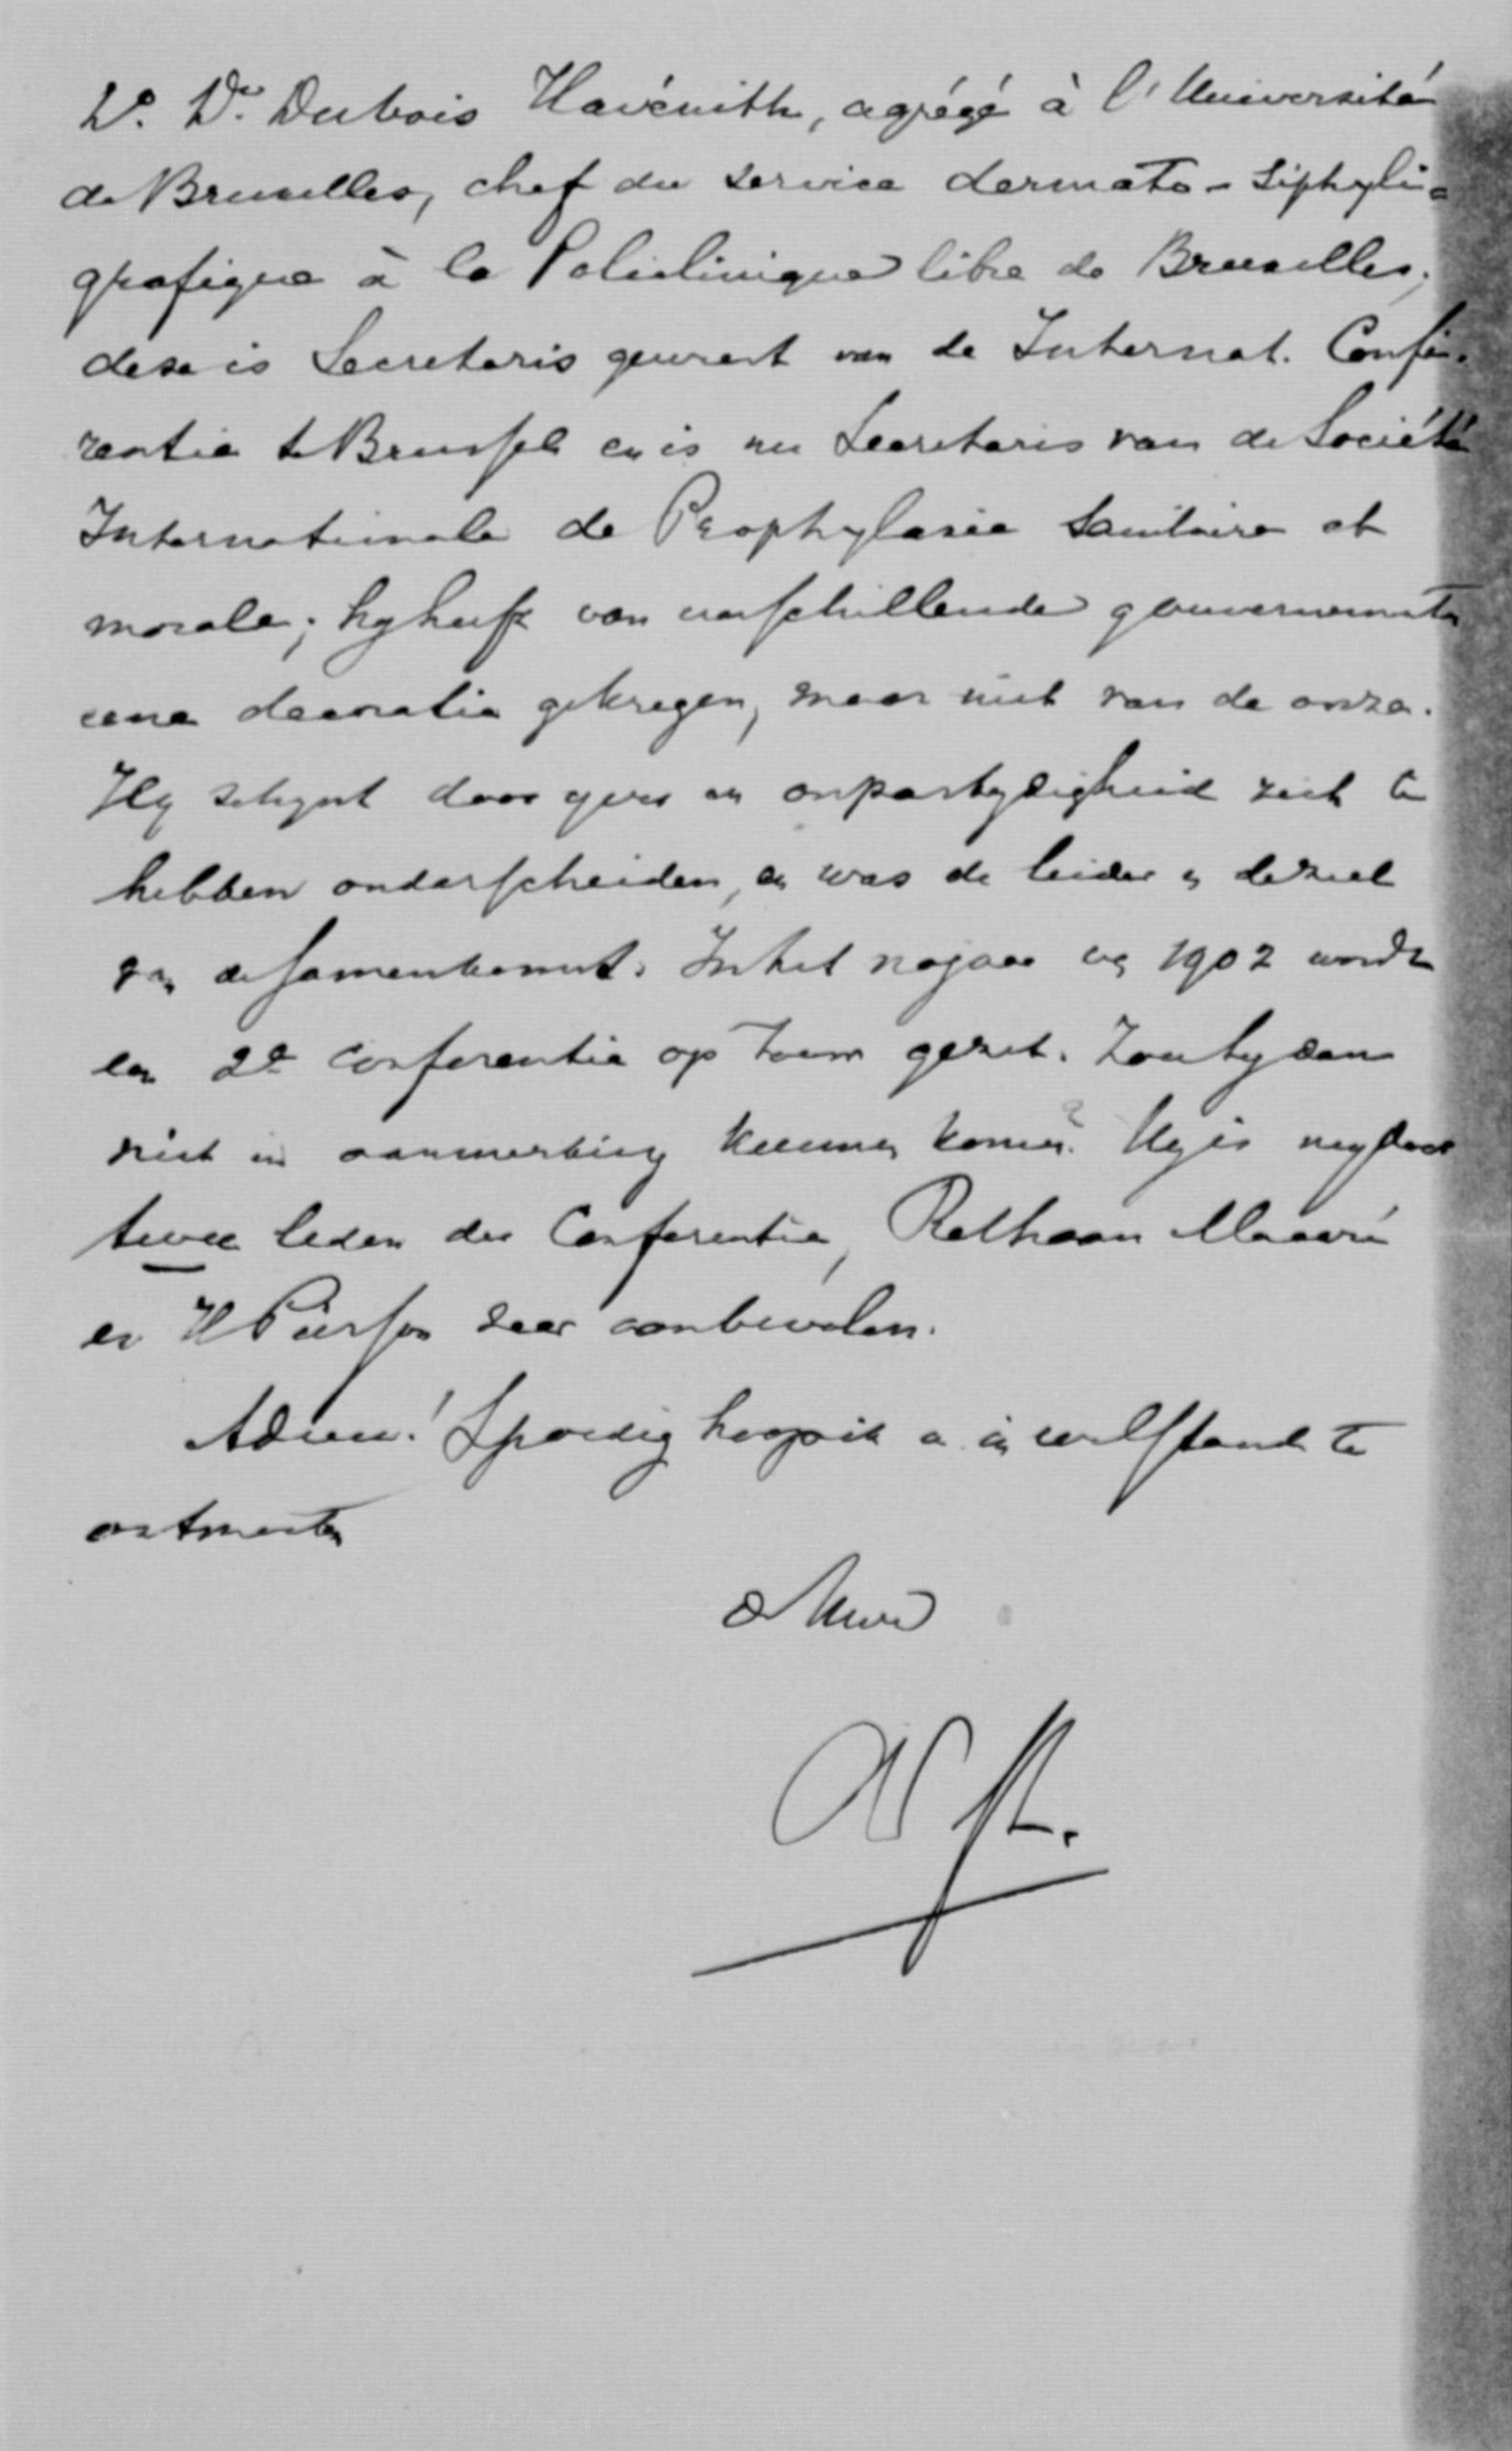 2o. Dr. Dubois Havénith, agrégé à l'Université
de Bruxelles, chef du service dermato-siphyli-
grafique à la Policlinique libre de Bruxelles;
deze is Secretaris geweest van de Internat. Confe-
rentie te Brussel en is nu Secretaris van de Société
Internationale de Prophylaxie Sanitaire et
morale; hy heeft van verschillende gouvernementen
eene decoratie gekregen, maar niet van de onze.
Hy schynt door yver en onpartydigheid zich te
hebben onderscheiden, en was de leider en de ziel
van de samenkomst. In het najaar van 1902 wordt
een 2e conferentie op touw gezet. Zou hy dan
niet in aanmerking kunnen komen? Hy is my door
twee leden der Conferentie, Rethaan Macaré
en H Pierson zeer aanbevolen.
Adieu! Spoedig hoop ik u in welstand te
ontmoeten